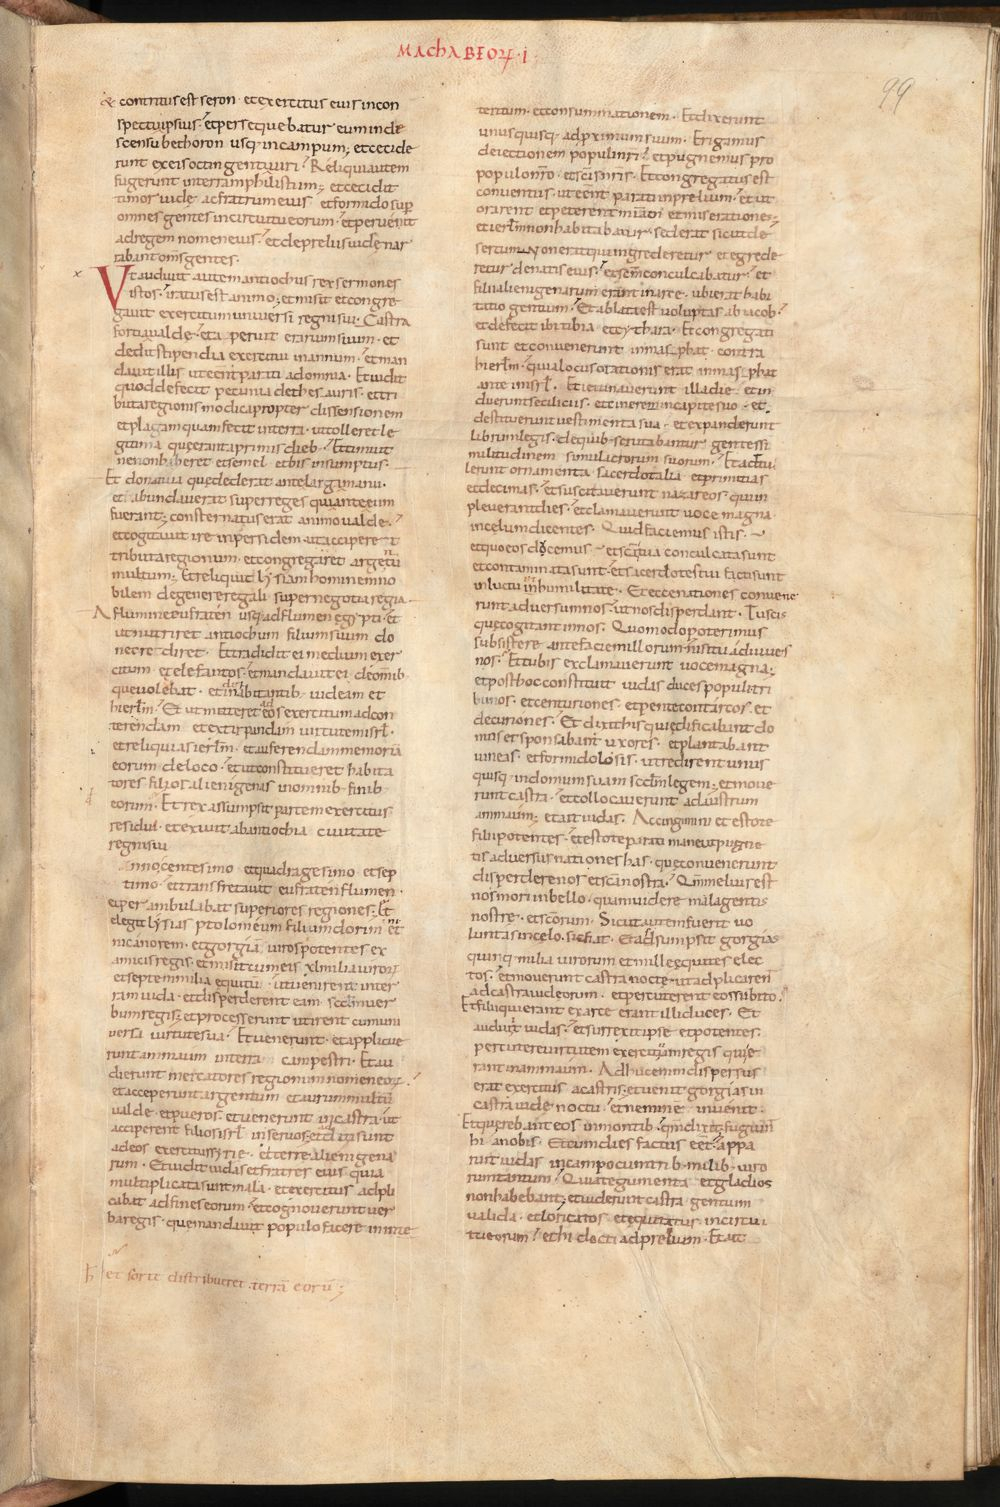 MAChABEOR I
99
& contritus est seron et exercitus eius in con
spectu ipsius et persequebatur eum in de
scensu bethoron usq; in campum; et cecide
runt ex eis octingenti uiri Reliqui autem
fugerunt in terram philistiim; et cecidit
timor iude ac fratrum eius et formido sup
omnes gentes in circuitu eorum et peruenit
ad regem nomen eius et de preliis iude nar
rabant oms gentes
x
Vt audiuit autem antiochus rex sermones
istos iratus est animo; et misit et congre
gauit exercitum uniuersi regni sui Castra
fortia ualde et aperuit erarium suum et
dedit stipendia exercitui in annum et man
dauit illis ut eent parati ad omnia Et uidit
quod defecit pecunia de thesauris et tri
buta regionis modica propter dissensionem
et plagam quam fecit in terra ut tolleret le
gitima que erant a primis dieb; Et timuit
ne non haberet et semel et bis in sumptus
Et donatiua que dederat ante larga manu
et abundauerat super reges qui ante eum
fuerant; consternatus erat animo ualde
et cogitauit ire in persidem ut acciperet
tributa regionum et congregaret argentu
multum; Et reliquit lysiam hominem no
bilem de genere regali super negotia regia
A flumine eufraten usq; ad flumen egypti et
ut nutriret antiochum filium suum do
nec rediret Et tradidit ei medium exer
citum et elefantos et mandauit ei de omib
que uolebat et de inhabitantib iudeam et
hierlm Et ut mitteret ad eos exercitum ad con
terendam et extirpandam uirtutem isrl
et reliquias ierlm et auferendam memoria
eorum de loco et ut constitueret habita
tores filios alienigenas in omnib finib
eorum Et rex assumpsit partem exercitus
residui et exiuit ab antiochia ciuitate
regni sui
Anno centesimo et quadragesimo et sep
timo et transfretauit eufraten flumen
et perambulabat superiores regiones Et
elegit lysias ptolomeum filium dorini et
nicanorem et gorgia uiros potentes ex
amicis regis et misit cum eis xl milia uiror
et septem milia equitu ut uenirent in ter
ram iuda et disperderent eam scdm uer
bum regis; et processerunt ut irent cum uni
uersa uirtute sua Et uenerunt et applicue
runt ammaum in terra campestri Et au
dierunt mercatores regionum nomen eor
et acceperunt argentum et aurum multu
ualde et pueros et uenerunt in castra ut
acciperent filios isrl in seruos et additi sunt
ad eos exercitus syrie et terre alienigena
rum Et uidit iudas et fratres eius quia
multiplicata sunt mala et exercitus adpli
cabat ad fines eorum et cognouerunt uer
ba regis que mandauit populo facere in inte
h et sorte distribueret terra eoru;
teritum et consummationem Et dixerunt
unusquisq; ad pximum suum Erigamus
deiectionem populi nri et pugnemus pro
populo nro et scis nris Et congregatus est
conuentus ut eent parati in prelium et ut
orarent et peterent miam et miserationes
et ierlm non habitabatur sed erat sicut de
sertum Non erat qui ingrederetur et egrede
retur de natis eius et scm conculcabatur et
filii alienigenarum erant in arce ubi erat habi
tatio gentium Et ablata est uoluptas ab iacob
et defecit ibi tibia et cythara Et congregati
sunt et conuenerunt in masphat contra
hierlm quia locus orationis erat in masphat
ante in isrl Et ieiunauerunt illa die et in
duerunt se ciliciis et cinerem in capite suo et
destituerunt uestimenta sua et expanderunt
librum legis de quib scrutabantur gentes si
militudinem simulacrorum suorum Et attu
lerunt ornamenta sacerdotalia et primitias
et decimas et suscitauerunt nazareos qui im
pleuerant dies et clamauerunt uoce magna
in celum dicentes Quid faciemus istis
et quo eos ducemus et sca tua conculcata sunt
et contaminata sunt et sacerdotes tui facti sunt
in luctu in humilitate Et ecce nationes conuene
runt aduersum nos ut nos disperdant Tu scis
que cogitant in nos Quomodo poterimus
subsistere ante faciem illorum nisi tu adiuues
nos Et tubis exclamauerunt uoce magna;
et post hoc constituit iudas duces populi tri
bunos et centuriones et pentecontarcos et
decuriones Et dixit his qui edificabant do
mus et sponsabant uxores et plantabant
uineas et formidolosis ut redirent unus
quisq; in domum suam scdm legem; et moue
runt castra et collocauerunt ad austrum
ammaum; et ait iudas Accingimini et estote
filii potentes et estote parati mane ut pugne
tis aduersus nationes has que conuenerunt
disperdere nos et sca nostra Qm melius est
nos mori in bello quam uidere mala gentis
nostre et scorum Sicut autem fuerit uo
luntas in celo sic fiat Et adsumpsit gorgias
quinq; milia uirorum et mille equites elec
tos et mouerunt castra nocte ut adplicaren
ad castra iudeorum et percuterent eos subito
Et filii qui erant ex arce erant illi duces Et
audiuit iudas et surrexit ipse et potentes
percutere uirtutem exercituum regis qui e
rant in ammaum Adhuc enim dispersus
erat exercitus a castris et uenit gorgias in
castra iude noctu et neminem inuenit
Et querebant eos in montib qm dixit fugiunt
hi a nobis Et cum dies factus eet appa
ruit iudas in campo cum trib milib uiro
rum tantum Qui a tegumenta et gladios
non habebant; et uiderunt castra gentium
ualida et loricatos et equitatus in circui
tu eorum et hi docti ad prelium Et ait